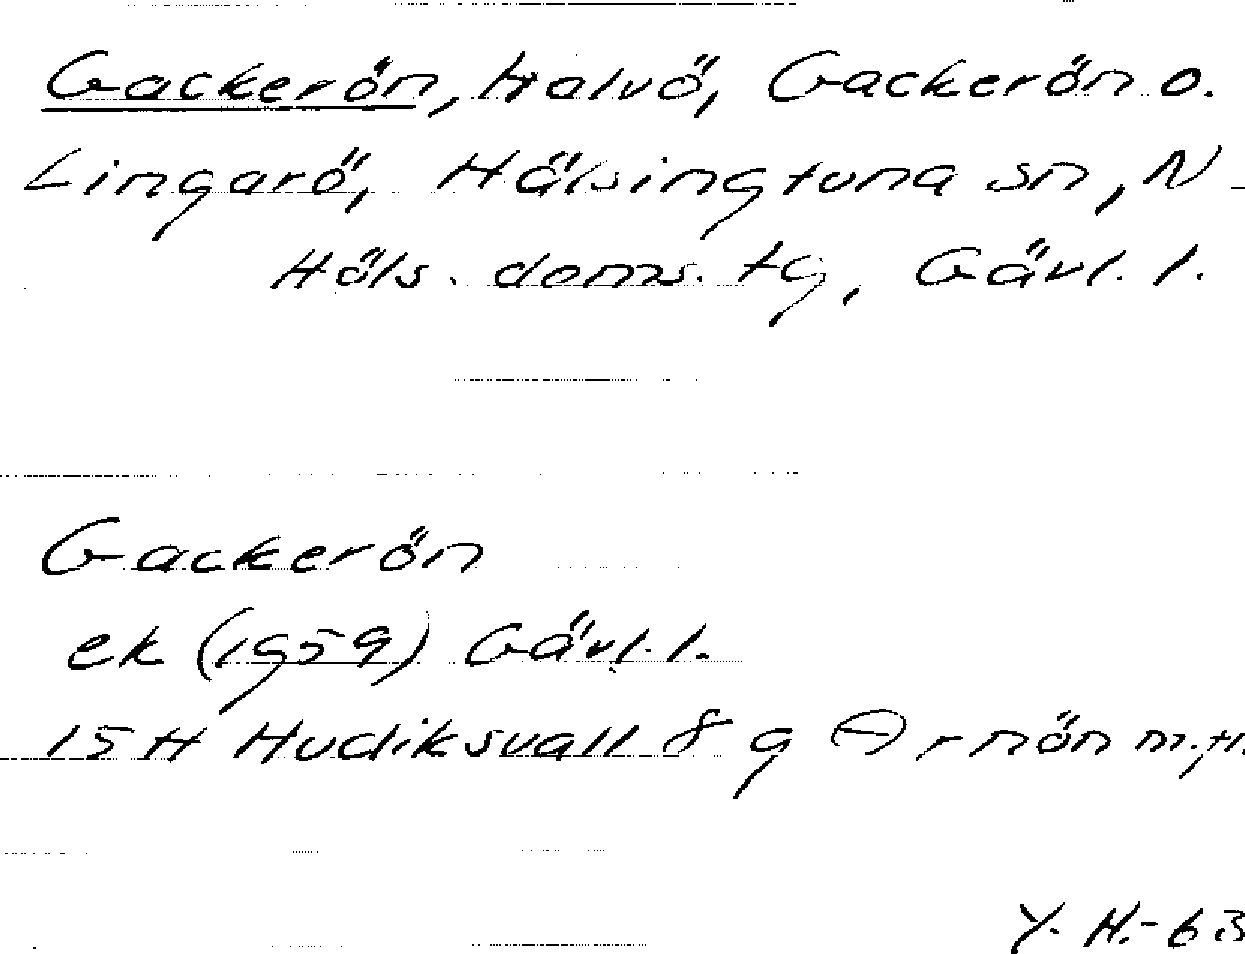 Gackerön, halvö, Gackerön o.
Lingarö, Hälsingtuna sn, N
Häls. doms. tg, Gävl. l.
Gackerön
ek (1959) Gävl. l.
15H Hudiksvall 8 g Arnön m.fl.
Y. H.-63